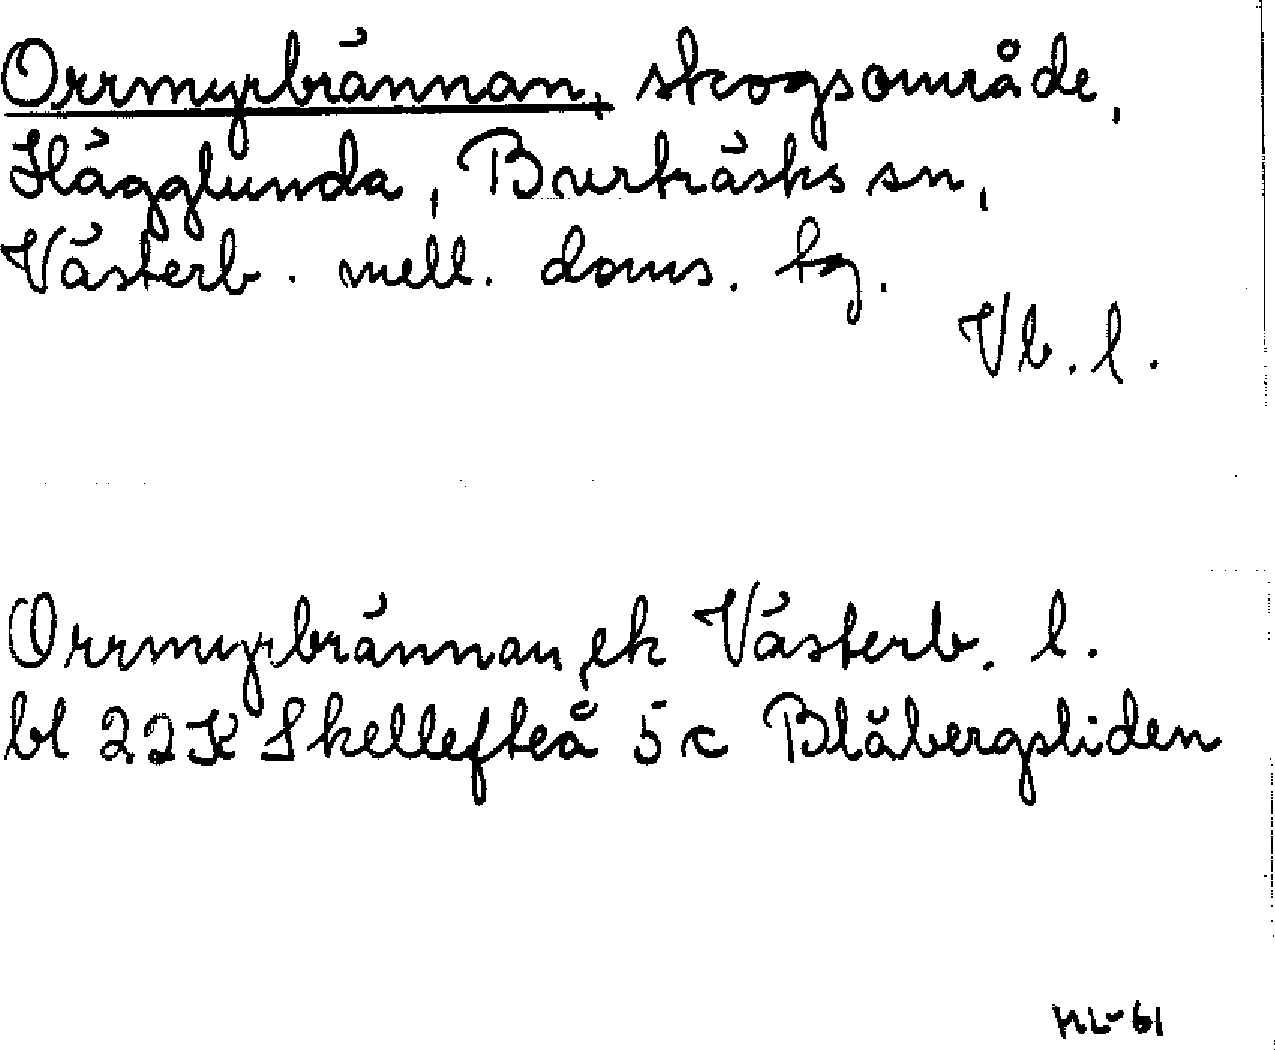 Orrmyrbrännan, skogsområde,
Hägglunda, Burträsks sn,
Västerb. mell. doms. tg.
Vb. l.
Orrmyrbrännan, ek Västerb. l.
bl 22K Skellefteå 5c Blåbergsliden
NL-61